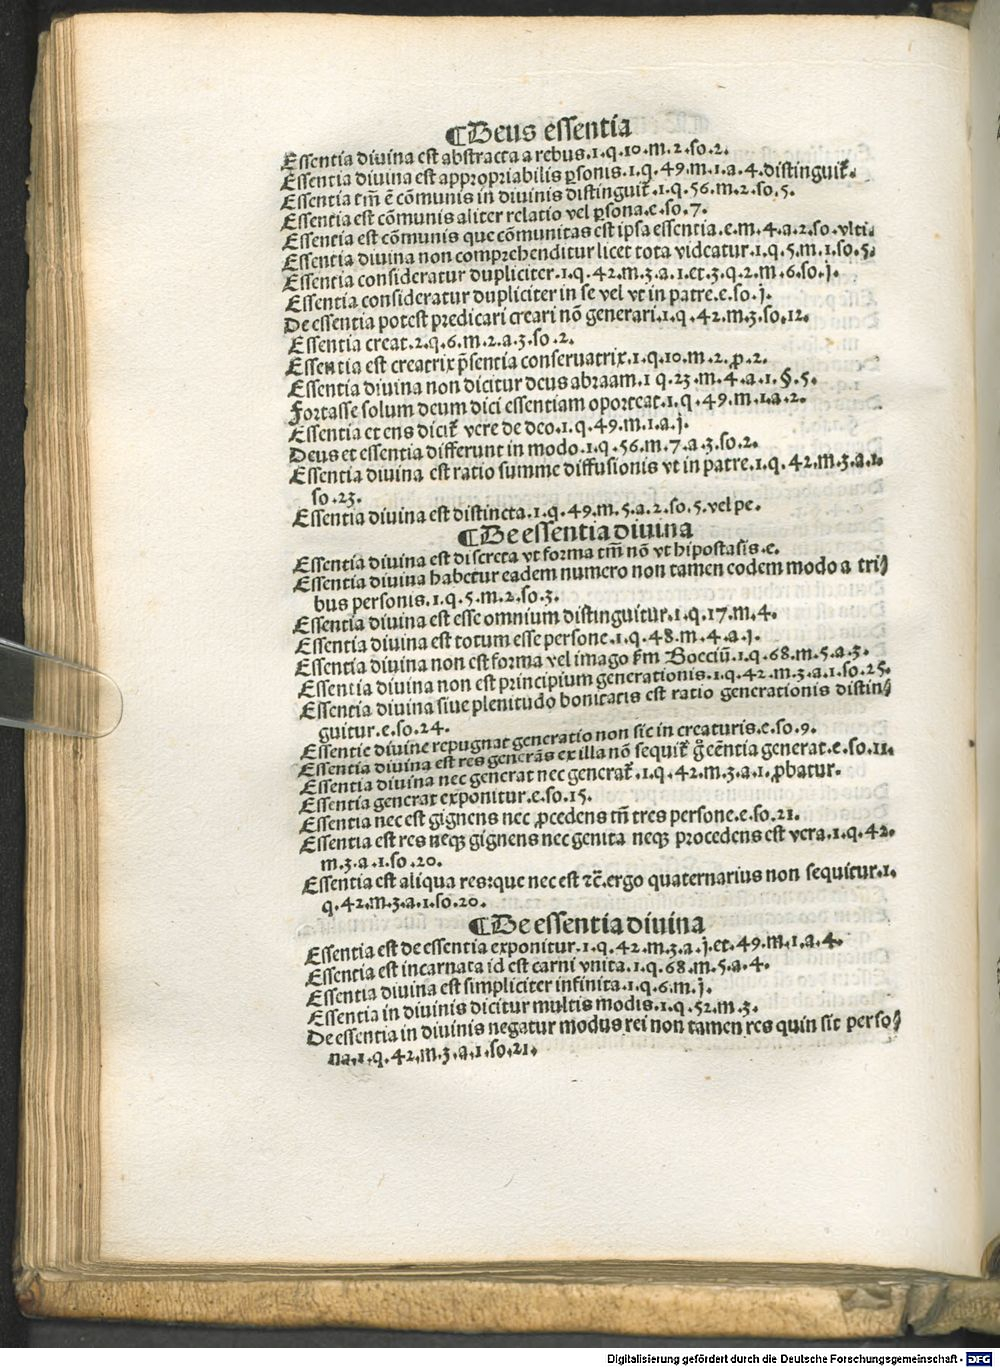 ¶Deus essentia
Essentia diuina est abstracta a rebus.1.q.10.m.2.so.2.
Essentia diuina est appropriabilis ꝑsonis.1.q.49.m.1.a.4.distinguit᷑.
Essentia tm̄ ē cōmunis in diuinis distinguit᷑.1.q.56.m.2.so.5.
Essentia est cōmunis aliter relatio vel ꝑsona.e.so.7.
Essentia est cōmunis que cōmunitas est ipsa essentia.e.m.4.a.2.so.vlti.
Essentia diuina non comprehenditur licet tota videatur.1.q.5.m.1.so.5.
Essentia consideratur dupliciter.1.q.42.m.3.a.1.et.3.q.2.m.6.so.j.
Essentia consideratur dupliciter in se vel vt in patre.e.so.j.
De essentia potest predicari creari nō generari.1.q.42.m.3.so.12.
Essentia creat.2.q.6.m.2.a.3.so.2.
Essentia est creatrix p̄sentia conseruatrix.1.q.10.m.2.ꝓ.2.
Essentia diuina non dicitur deus abraam.1 q.23.m.4.a.1.§.5.
Fortasse solum deum dici essentiam oporteat.1.q.49.m.1.a.2.
Essentia et ens dicit᷑ vere de deo.1.q.49.m.1.a.j.
Deus et essentia differunt in modo.1.q.56.m.7.a.3.so.2.
Essentia diuina est ratio summe diffusionis vt in patre.1.q.42.m.3.a.1.
so.23.
Essentia diuina est distincta.1.q.49.m.5.a.2.so.5.vel pe.
¶De essentia diuina
Essentia diuina est discreta vt forma tm̄ nō vt hipostasis.e.
Essentia diuina habetur eadem numero non tamen eodem modo a tri⸗
bus personis.1.q.5.m.2.so.3.
Essentia diuina est esse omnium distinguitur.1.q.17.m.4.
Essentia diuina est totum esse persone.1.q.48.m.4.a.j.
Essentia diuina non est forma vel imago ẜm Boeciū.1.q.68.m.5.a.3.
Essentia diuina non est principium generationis.1.q.42.m.3.a.1.so.25.
Essentia diuina siue plenitudo bonitatis est ratio generationis distin⸗
guitur.e.so.24.
Essentie diuine repugnat generatio non sic in creaturis.e.so.9.
Essentia diuina est res generās ex illa nō sequit᷑ ꝙ eēntia generat.e.so.11.
Essentia diuina nec generat nec generat᷑.1.q.42.m.3.a.1.ꝓbatur.
Essentia generat exponitur.e.so.15.
Essentia nec est gignens nec ꝓcedens tn̄ tres persone.e.so.21.
Essentia est res neqꝫ gignens nec genita neqꝫ procedens est vera.1.q.42.
m.3.a.1.so.20.
Essentia est aliqua res:que nec est ⁊c̄.ergo quaternarius non sequitur.1.
q.42.m.3.a.1.so.20.
¶De essentia diuina
Essentia est de essentia exponitur.1.q.42.m.3.a.j.et.49.m.1.a.4.
Essentia est incarnata id est carni vnita.1.q.68.m.5.a.4.
Essentia diuina est simpliciter infinita.1.q.6.m.j.
Essentia in diuinis dicitur multis modis.1.q.52.m.3.
De essentia in diuinis negatur modus rei non tamen res quin sit perso⸗
na.1.q.42.m.3.a.1.so.21.
Digitalisierung gefördert durch die Deutsche Forschungsgemeinschaft - DFG